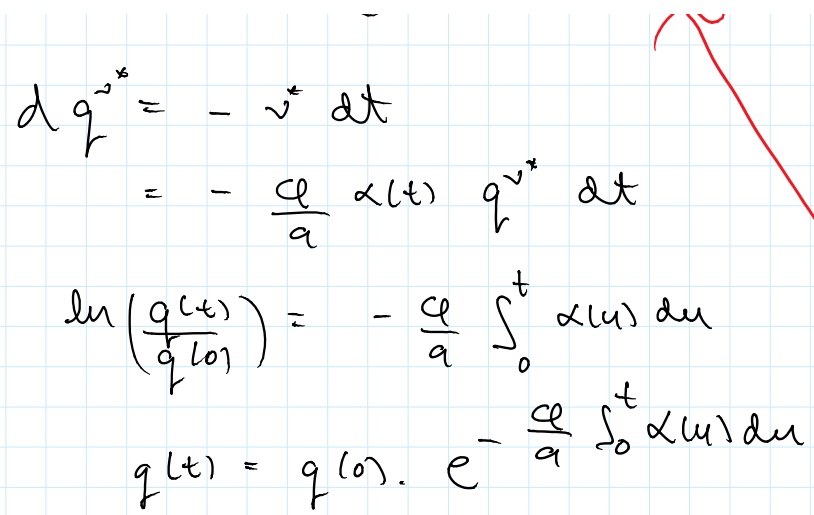 d q^{ν*} = - ν* dt
= - φ/a α(t) q^{ν*} dt
ln(q(t)/q(0)) = - φ/a ∫_0^t α(u) du
q(t) = q(0). e^{- φ/a ∫_0^t α(u) du}